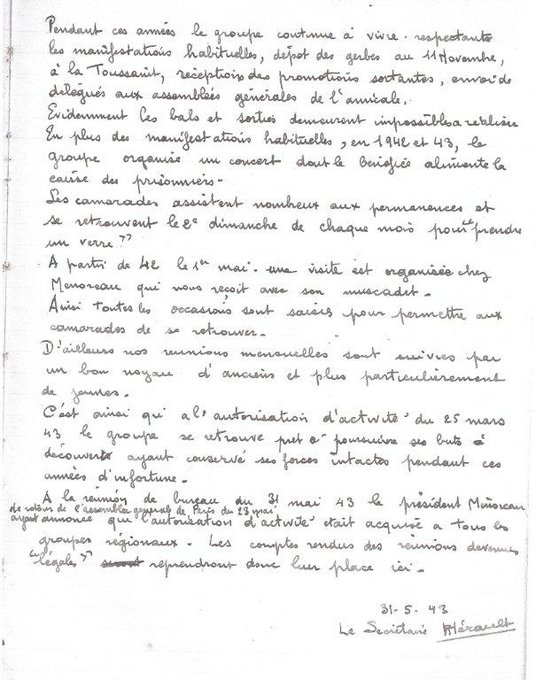 Pendant ces années le groupe continue à vivre. respectants
les manifestations habituelles, dépot des gerbes au 11 Novembre,
à la Toussaint, réceptions des promotions sortantes, envoi de
délégués aux assemblées générales de l'amicale.
Evidemment les bals et sorties demeurent impossibles a réaliser
En plus des manifestations habituelles, en 1942 et 43, le
groupe organise un concert dont le bénéfice alimente la
caisse des prisonniers.
Les camarades assistent nombreux aux permanences et
se retrouvent le 2e dimanche de chaque mois pour "prendre
un verre"
A partir de 42 le 1er mai. une visite est organisée chez
Menoreau qui nous reçoit avec son muscadet.
Ainsi toutes les occasions sont saisies pour permettre aux
camarades de se retrouver.
D'ailleurs nos reunions mensuelles sont suivies par
un bon noyau d'anciens et plus particulièrement
de jeunes.
C'est ainsi qu'a l'autorisation d'activité du 25 mars
43 le groupe se retrouve pret à poursuivre ses buts à
découverts ayant conservé ses forces intactes pendant ces
années d'infortune.
A la réunion de bureau du 31 mai 43 le président Menoreau
de retour de l'assemblée générale de Paris du 23 mai
ayant annoncé que l'autorisation d'activité etait acquise a tous les
groupes régionaux. Les comptes rendus des reunions devenues
"légales" reprendront donc leur place ici.
31-5-43
Le Secrétaire Hérault